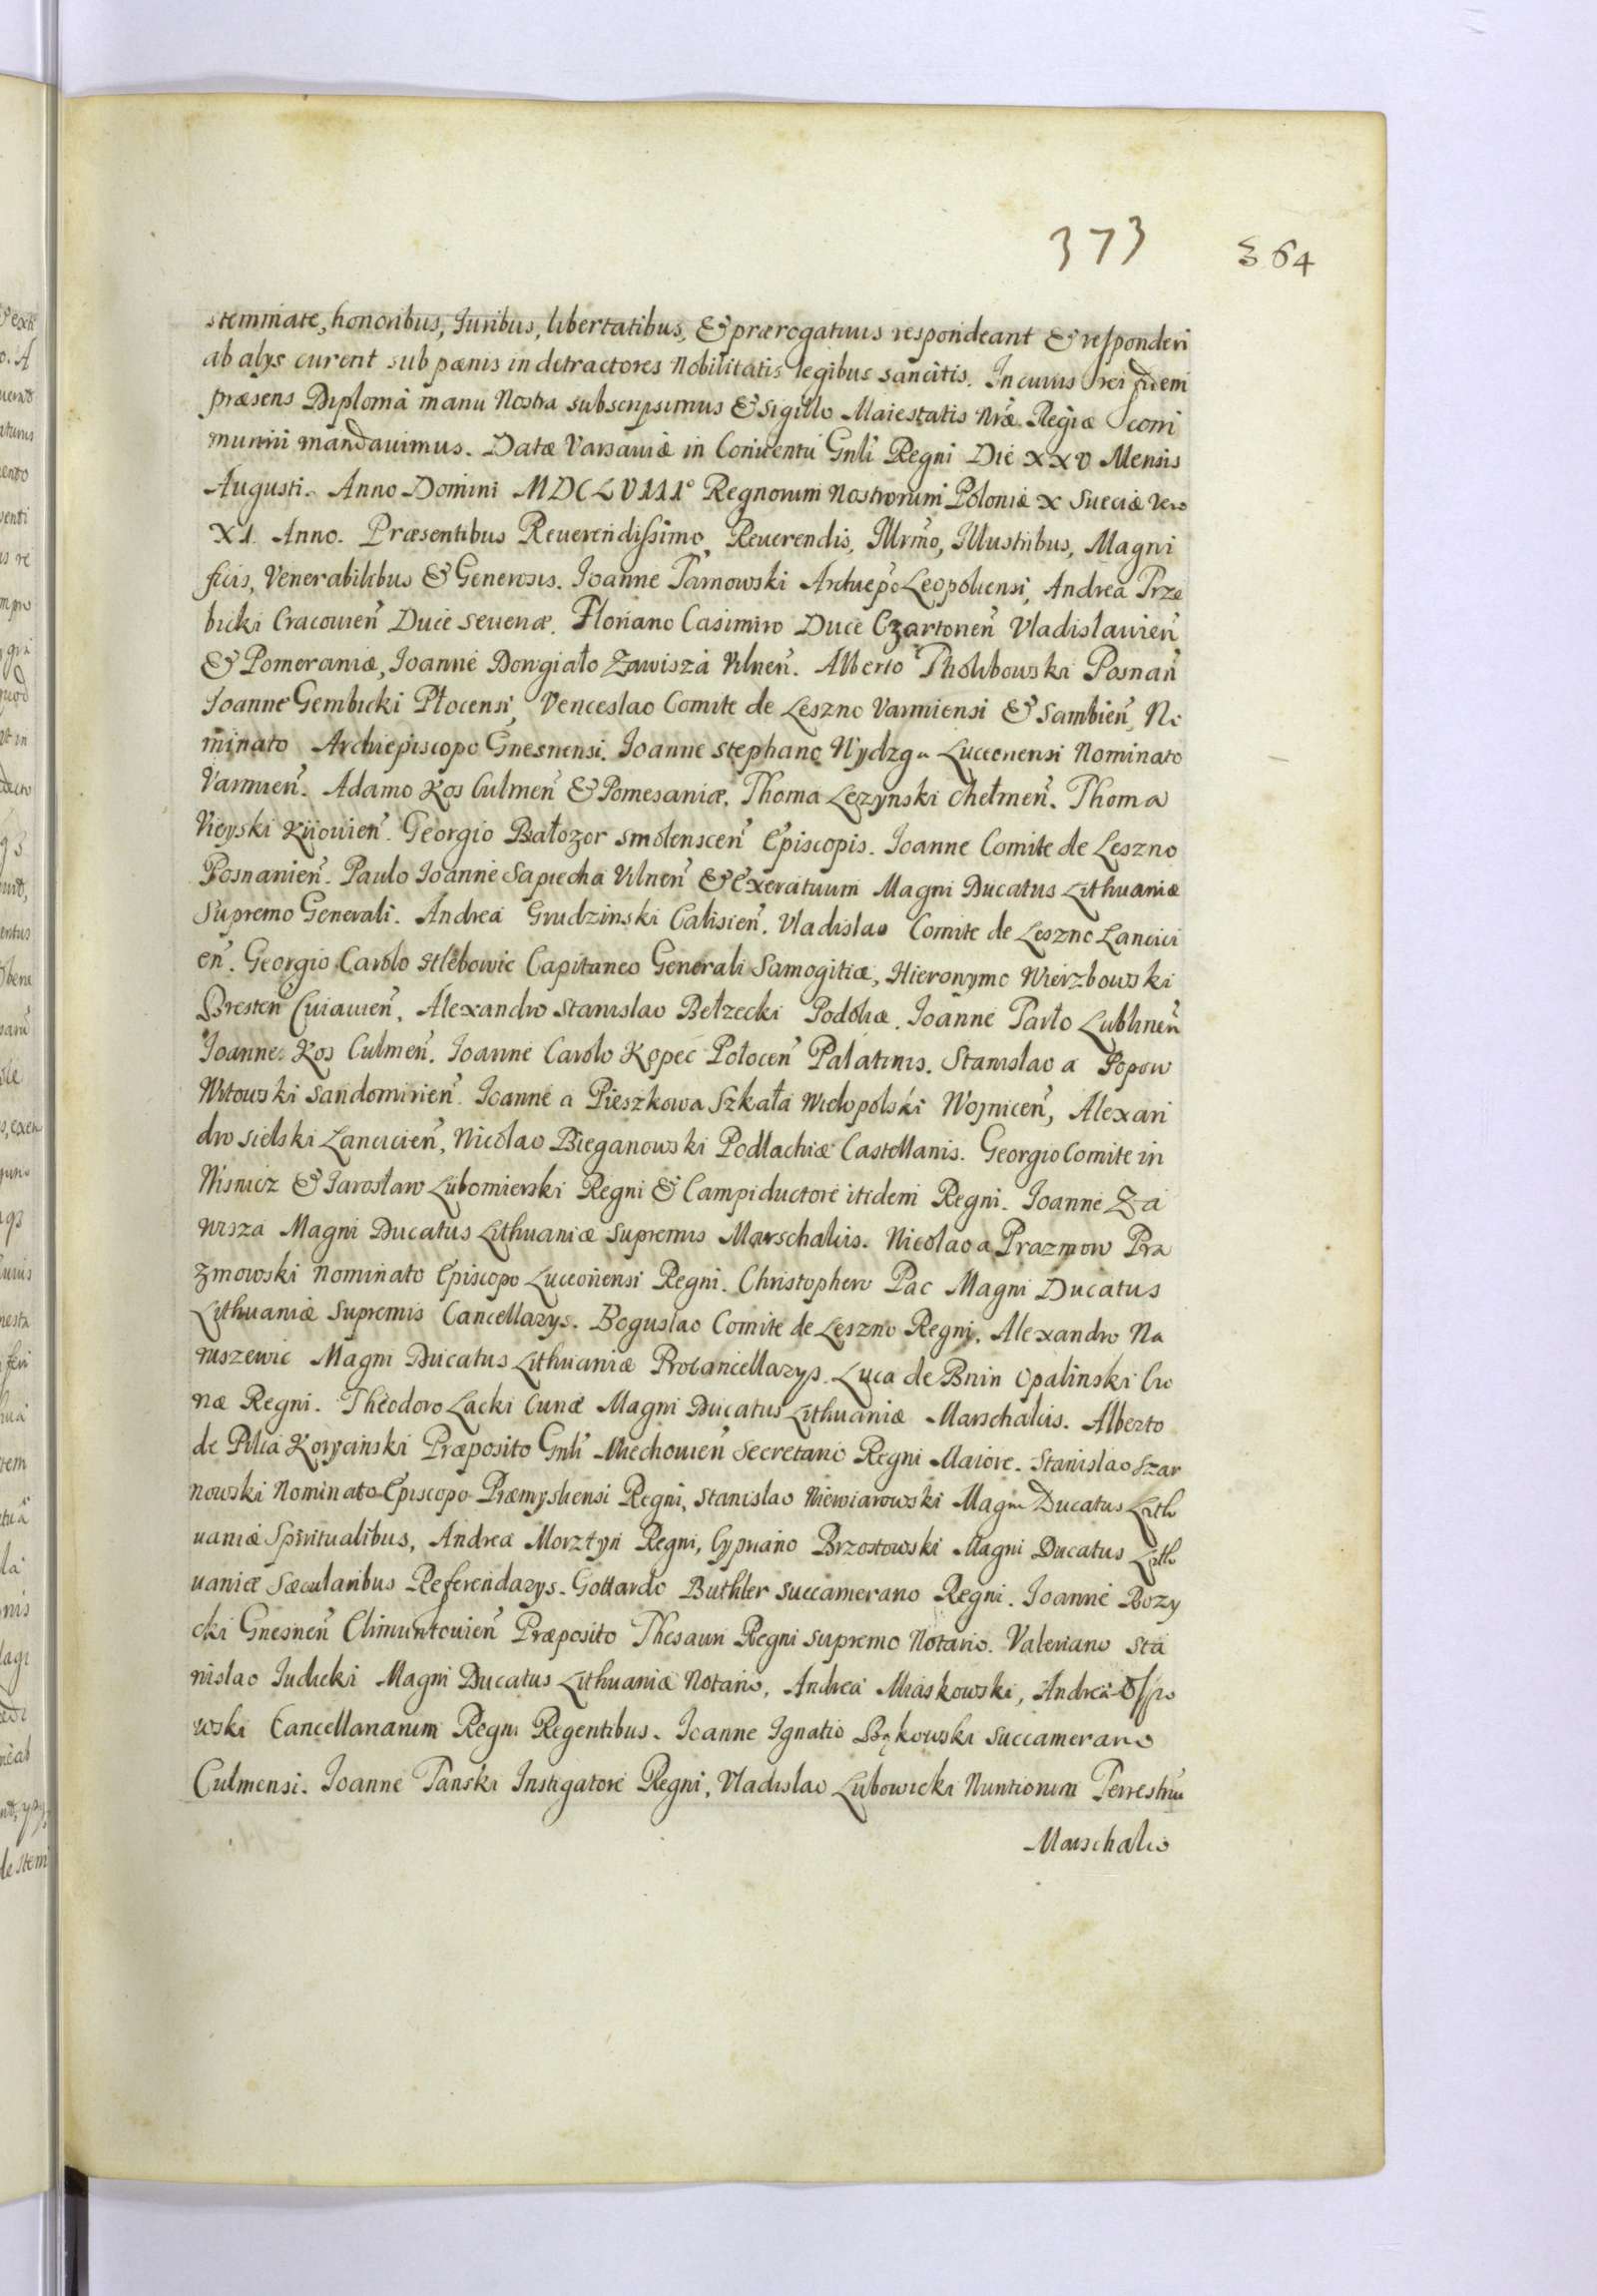 373
364
stemmate, honoribus, Iuribus, libertatibus, & prærogativis respondeant & responderi
ab alys curent sub pœnis in detractores Nobilitatis legibus sancitis. In cuius rei fidem
præsens Diploma manu Nostra subscripsimus & sigillo Maiestatis Nræ Regiæ com
muniri mandavimus. Datæ Varsaviæ in Conventu Gnli Regni Die XXV Mensis
Augusti. Anno Domini MDCLVIII° Regnorum Nostrorum Poloniæ X Sueciæ vero
XI. Anno. Præsentibus Reverendissimo, Reverendis, Illrmo, Illustribus, Magni
ficis, Venerabilibus & Generosis. Ioanne Tarnowski Archiepo Leopoliensi, Andrea Trze
bicki Cracovien̄ Duce Severiæ. Floriano Casimiro Duce Czartorien̄ Vladislavien̄
& Pomeraniæ, Ioanne Dowgiało Zawisza Vilnen̄. Alberto Tholibowski Posnan̄
Ioanne Gembicki Płocensi, Venceslao Comite de Leszno Varmiensi & Sambien̄, No
minato Archiepiscopo Gnesnensi. Ioanne Stephano Wydzga Lucconensi Nominato
Varmien̄. Adamo Kos Culmen̄ & Pomesaniæ. Thoma Lezynski Chełmen̄. Thoma
Vieyski Kiiovien̄. Georgio Białozor Smolenscen̄ Episcopis. Ioanne Comite de Leszno
Posnanien̄. Paulo Ioanne Sapiecha Vilnen̄ & Exercituum Magni Ducatus Lithuaniæ
Supremo Generali. Andrea Grudzinski Calisien̄. Vladislao Comite de Leszno Lancici
en̄. Georgio Carolo Hlebowic Capitaneo Generali Samogitiæ, Hieronymo Wierzbowski
Bresten̄ Cuiavien̄. Alexandro Stanislao Bełzecki Podoliæ. Ioanne Tarło Lublinen̄
Ioanne Kos Culmen̄. Ioanne Carolo Kopec Połocen̄ Palatinis. Stanislao a Popow
Witowski Sandomirien̄. Ioanne a Pieszkowa Szkała Wielopolski Woynicen̄, Alexan
dro Sielski Lancicien̄, Nicolao Bieganowski Podlachiæ Castellanis. Georgio Comite in
Wisnicz & Iarosław Lubomierski Regni & Campiductore itidem Regni. Ioanne Za
wisza Magni Ducatus Lithuaniæ Supremis Marschalcis. Nicolao a Prazmow Pra
zmowski Nominato Episcopo Lucconensi Regni. Christophero Pac Magni Ducatus
Lithuaniæ Supremis Cancellarys. Boguslao Comite de Leszno Regni, Alexandro Na
ruszewic Magni Ducatus Lithuaniæ Procancellarys. Luca de Bnin Opalinski Cu
riæ Regni. Theodoro Lacki Curiæ Magni Ducatus Lithuaniæ Marschalcis. Alberto
de Pilca Korycinski Præposito Gnli Miechovien̄ Secretario Regni Maiore. Stanislao Szar
nowski Nominato Episcopo Præmysliensi Regni, Stanislao Niewiarowski Magni Ducatus Lith
uaniæ Spiritualibus, Andrea Morztyn Regni, Cypriano Brzostowski Magni Ducatus Lith
uaniæ Sæcularibus Referendarys. Gottardo Buthler Succamerario Regni. Ioanne Rozy
cki Gnesnen̄ Climuntovien̄ Præposito Thesauri Regni Supremo Notario. Valeriano Sta
nislao Iudicki Magni Ducatus Lithuaniæ Notario, Andrea Miaskowski, Andrea Olszo
wski Cancellariarum Regni Regentibus. Ioanne Ignatio Bąkowski Succamerario
Culmensi. Ioanne Tanski Instigatore Regni, Vladislao Lubowicki Nuntiorum Terrestriu
Marschalco